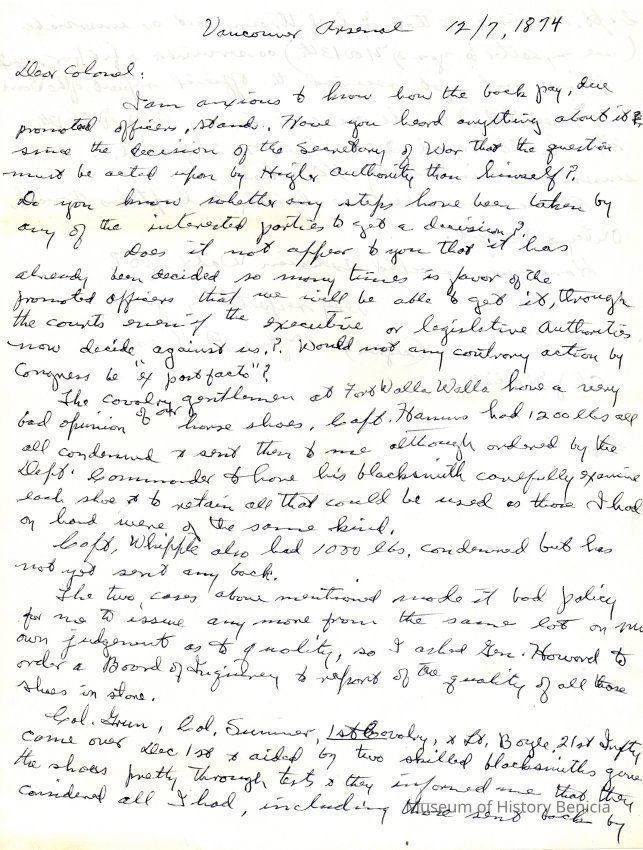 Vancouver Arsenal 12/7, 1874
Dear Colonel:
I am anxious to know how the back pay, due
promoted officers, stands. Have you heard anything about it
since the decision of the Secretary of War that the question
must be acted upon by Higher Authority than himself?
Do you know whether any steps have been taken by
any of the interested parties to get a decision?
Does it not appear to you that it has
already been decided so many times is favor of the
promoted officers that we will be able to get it, through
the courts even if the executive or legislative authorities
now decide against us,? Would not any contrary action by
Congress be "ex post facto"?
The cavalry gentlemen at Fort Walla Walla have a very
bad opinion of our horse shoes. Capt. had 1200 lbs all
all condemned & sent them to me although ordered by the
Dept. Commander to have his blacksmith carefully examine
each shoe & to retain all that could be used as those I had
on hand were of the same kind.
Capt, Whipple also had 1000 lbs. condemned but has
not yet sent any back.
The two cases above mentioned made it bad policy
for me to issue any more from the same lot on my
own judgement as to quality, so I asked Gen. Howard to
order a Board of Inquirey to report of the quality of all those
shoes in store.
Col. Grun, Col. Sumner, 1st Cavalry, & Lt. Boyle, 21st Infty
came over Dec 1st & aided by two skilled blacksmiths gave
the shoes pretty through tests & they informed me that they
considered all I had, including those sent back by
Museum of History Benicia